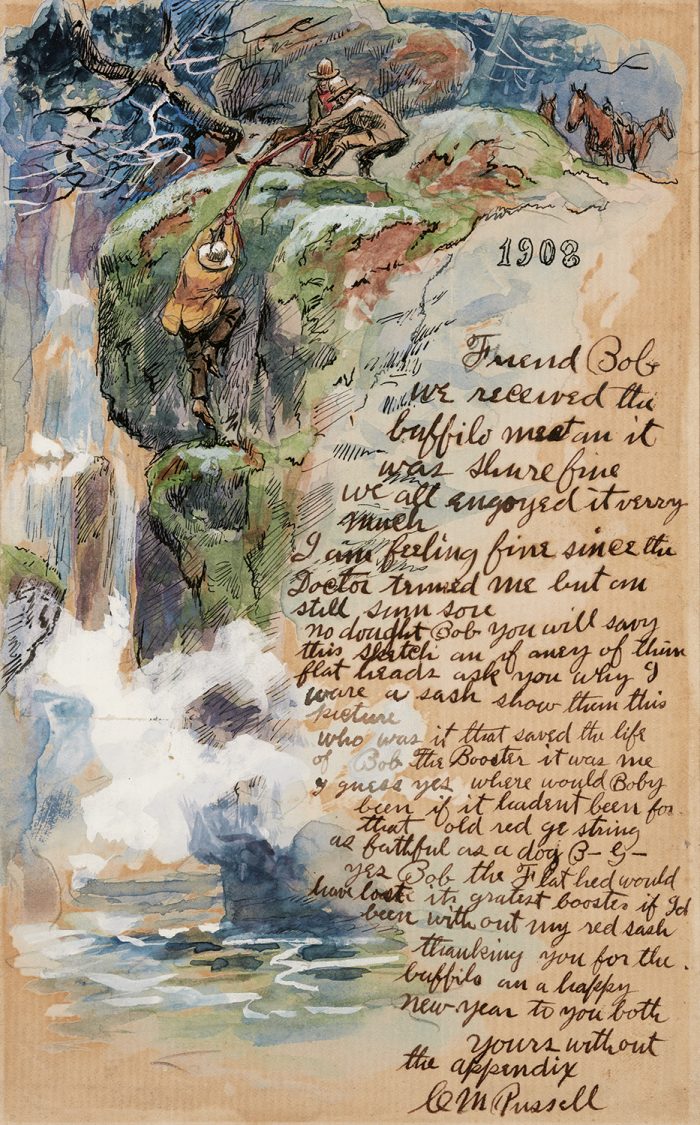 1908
Friend Bob
we received the
buffilo meet an it
was shure fine
we all engoyed it verry
much
I am feeling fine since the
Doctor trimed me but am
still sum sore
no dought Bob you will savy
this sketch an if aney of them
flat heads ask you why I
ware a sash show them this
picture
who was it that saved the life
of Bob the Booster it was me
I guess yes where would Boby
been if it hadent been for
that old red ge string
as faithful as a dog B– G–
yes Bob the Flat hed would
have lost its gratest booster if Id
been with out my red sash
thanking you for the
buffilo an a happy
new year to you both
yours without
the appendix
CM Russell